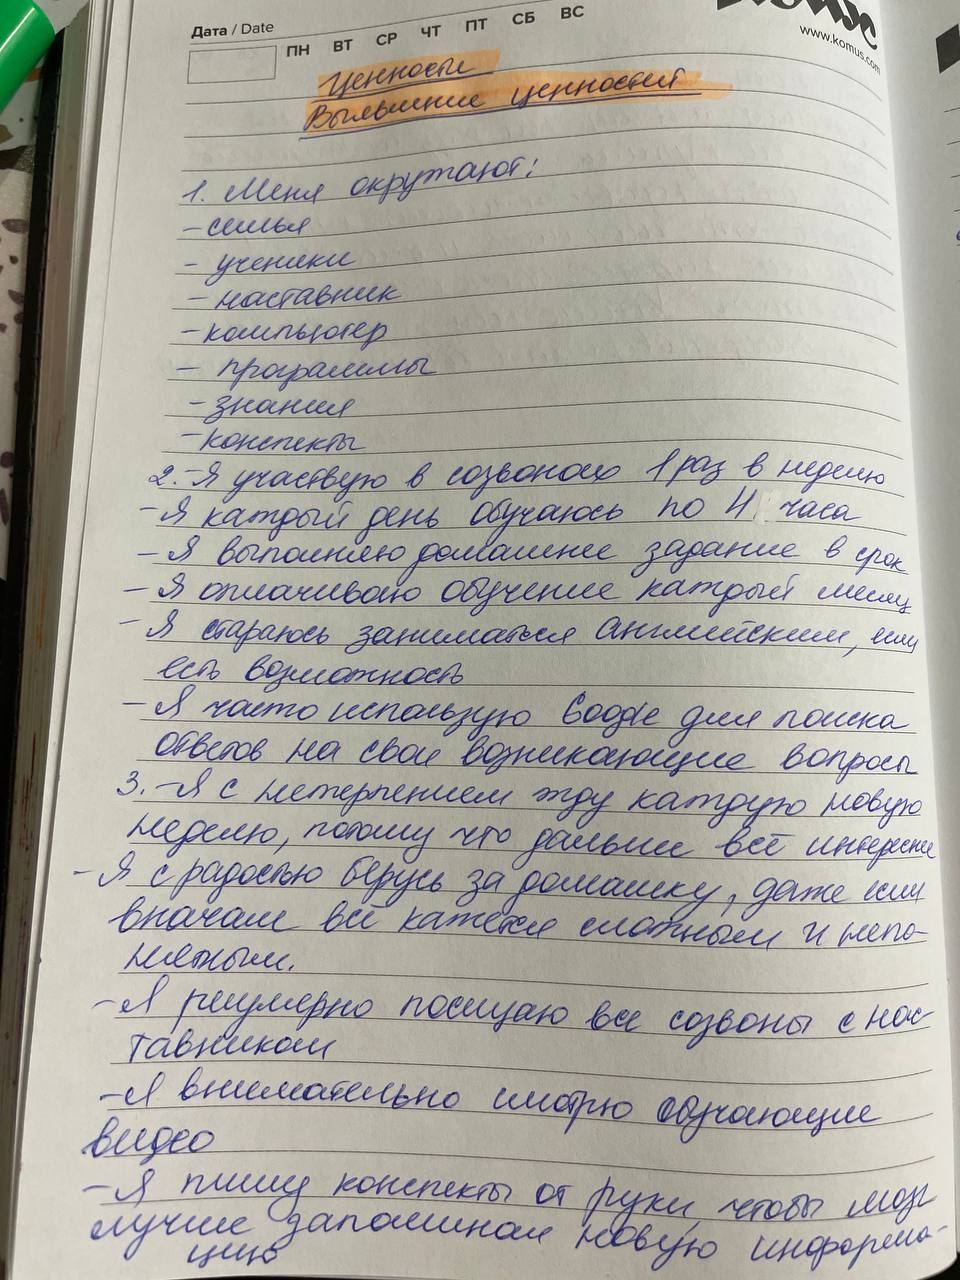 Дата / Date
ПН ВТ СР ЧТ ПТ СБ ВС
www.komus.com
Ценности
Выявление ценностей
1. Меня окружают:
- семья
- ученики
- наставник
- компьютер
- программы
- знания
- конспекты
2. - Я участвую в созвонах 1 раз в неделю
- Я каждый день обучаюсь по 4 часа
- Я выполняю домашнее задание в срок
- Я оплачиваю обучение каждый месяц
- Я стараюсь заниматься английским, если
есть возможность
- Я часто использую Google для поиска
ответов на свои возникающие вопросы
3. - Я с нетерпением жду каждую новую
неделю, потому что дальше всё интереснее
- Я с радостью берусь за домашку, даже если
вначале все кажется сложным и непо-
нятным.
- Я регулярно посещаю все созвоны с нас-
тавником
- Я внимательно смотрю обучающие
видео
- Я пишу конспекты от руки чтобы мозг
лучше запоминал новую информа-
цию